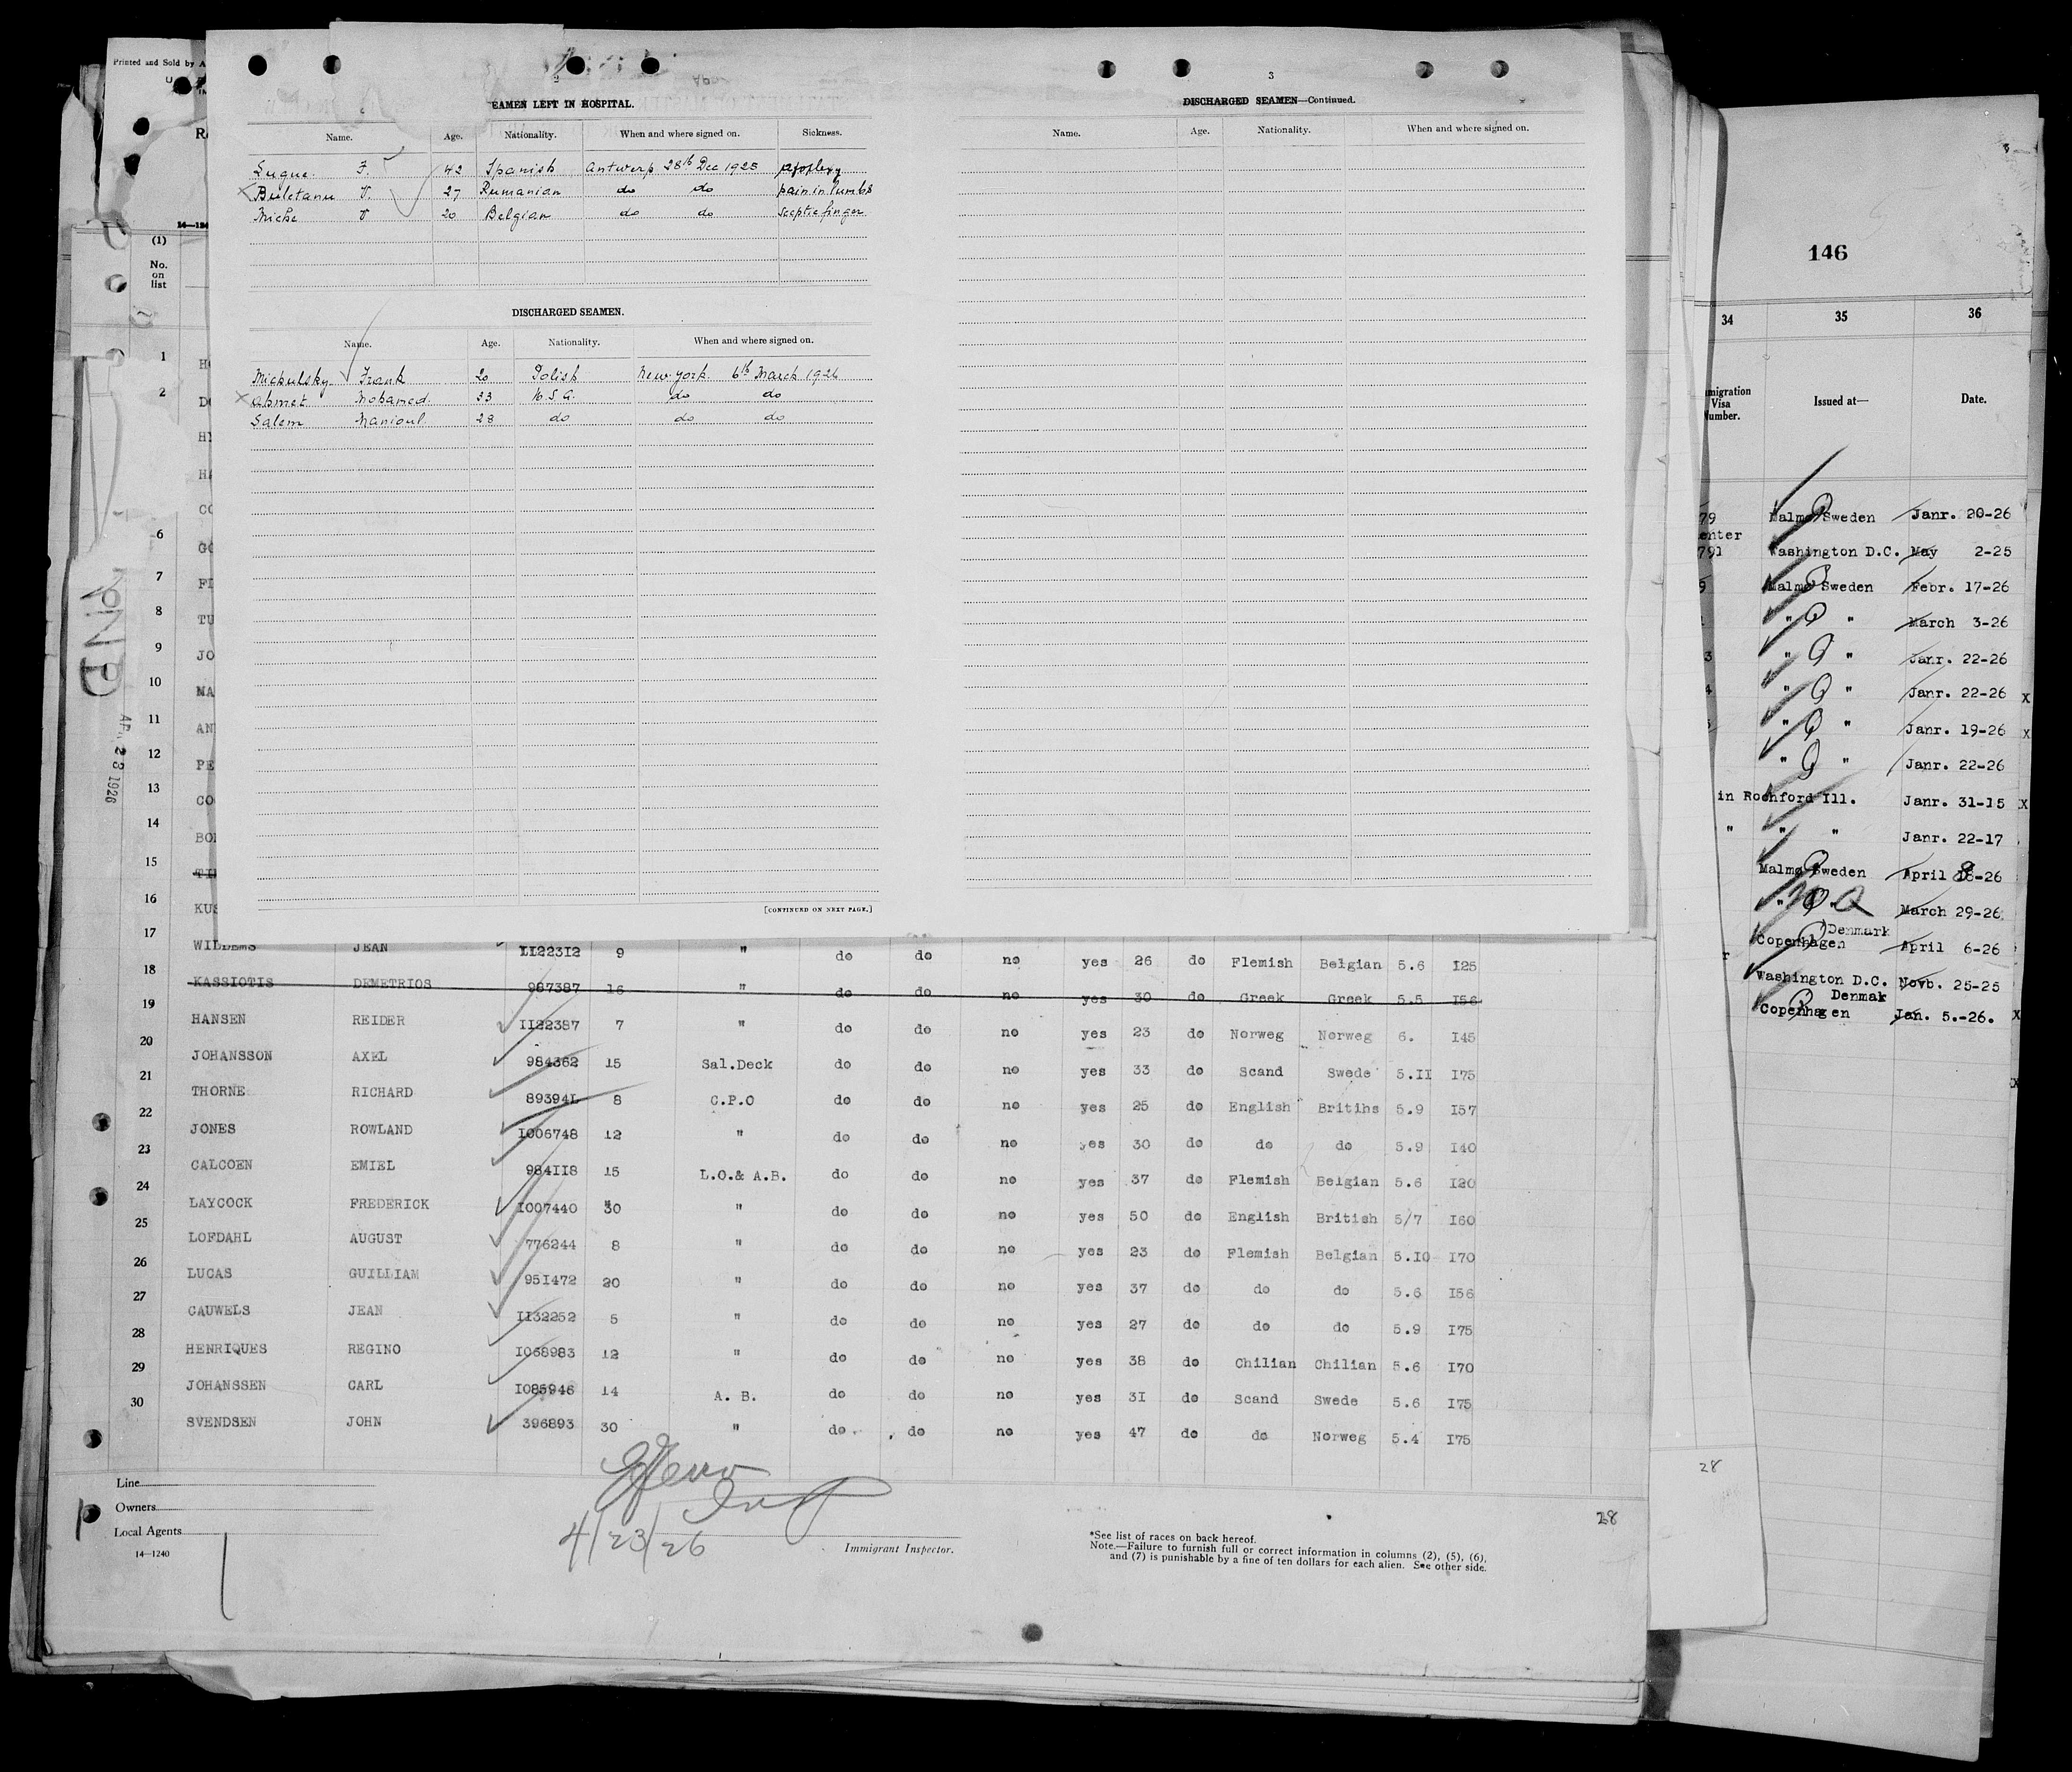 Printed and Sold by A
2
EAMEN LEFT IN HOSPITAL.
Name. Age. Nationality. When and where signed on. Sickness.
Luque. F. 42 Spanish Antwerp 28th Dec 1925 apoplexy
Buletanu V. 27 Rumanian do do pain in lumbs
Micke V 20 Belgian do do sceptic finger
DISCHARGED SEAMEN.
Name. Age. Nationality. When and where signed on.
Mickulsky Frank 20 Polish New-York. 6th March 1926
Ahmet Mohamed. 33 U.S.A. do do
Salem 28 do do do
[CONTINUED ON NEXT PAGE.]
3
DISCHARGED SEAMEN—Continued.
Name. Age. Nationality. When and where signed on.
(1)
No.
on
list
1
2
6
7
8
9
10
11
12
13
14
15
16
17
18
19
20
21
22
23
24
25
26
27
28
29
30
23 1926
WILDEMS JEAN II22312 9 " do do no yes 26 do Flemish Belgian 5.6 I25
KASSIOTIS DEMETRIOS 987387 16 " do do no yes 30 do Greek Greek 5.5 I56
HANSEN REIDER II22387 7 " do do no yes 23 do Norweg Norweg 6. I45
JOHANSSON AXEL 984362 15 Sal.Deck do do no yes 33 do Scand Swede 5.II I75
THORNE RICHARD 89394L 8 C.P.O do do no yes 25 do English Britihs 5.9 I57
JONES ROWLAND I006748 12 " do do no yes 30 do do do 5.9 I40
CALCOEN EMIEL 984II8 15 L.O.& A.B. do do no yes 37 do Flemish Belgian 5.6 I20
LAYCOCK FREDERICK I007440 30 " do do no yes 50 do English British 5/7 I60
LOFDAHL AUGUST 776244 8 " do do no yes 23 do Flemish Belgian 5.I0 I70
LUCAS GUILLIAM 95I472 20 " do do no yes 37 do do do 5.6 I56
CAUWELS JEAN II32252 5 " do do no yes 27 do do do 5.9 I75
HENRIQUES REGINO I068983 12 " do do no yes 38 do Chilian Chilian 5.6 I70
JOHANSSEN CARL I085946 14 A. B. do do no yes 3I do Scand Swede 5.6 I75
SVENDSEN JOHN 396893 30 " do do no yes 47 do do Norweg 5.4 I75
Line
Owners
Local Agents
14—1240
4/23/26
Immigrant Inspector.
*See list of races on back hereof.
Note.—Failure to furnish full or correct information in columns (2), (5), (6),
and (7) is punishable by a fine of ten dollars for each alien. See other side.
28
28
146
34 35 36
Visa
Issued at— Date.
79 Malmø Sweden Janr. 20-26
791 Washington D.C. May 2-25
9 Malmø Sweden Febr. 17-26
" " March 3-26
3 " " Janr. 22-26
4 " " Janr. 22-26 X
" " Janr. 19-26 X
" " Janr. 22-26
in Rochford Ill. Janr. 31-15 X
" " " Janr. 22-17
Malmø Sweden April -26
" March 29-26
Denmark
Copenhagen April 6-26
Washington D.C. Novb. 25-25
Denmak
Copenhagen Jan. 5.-26. X